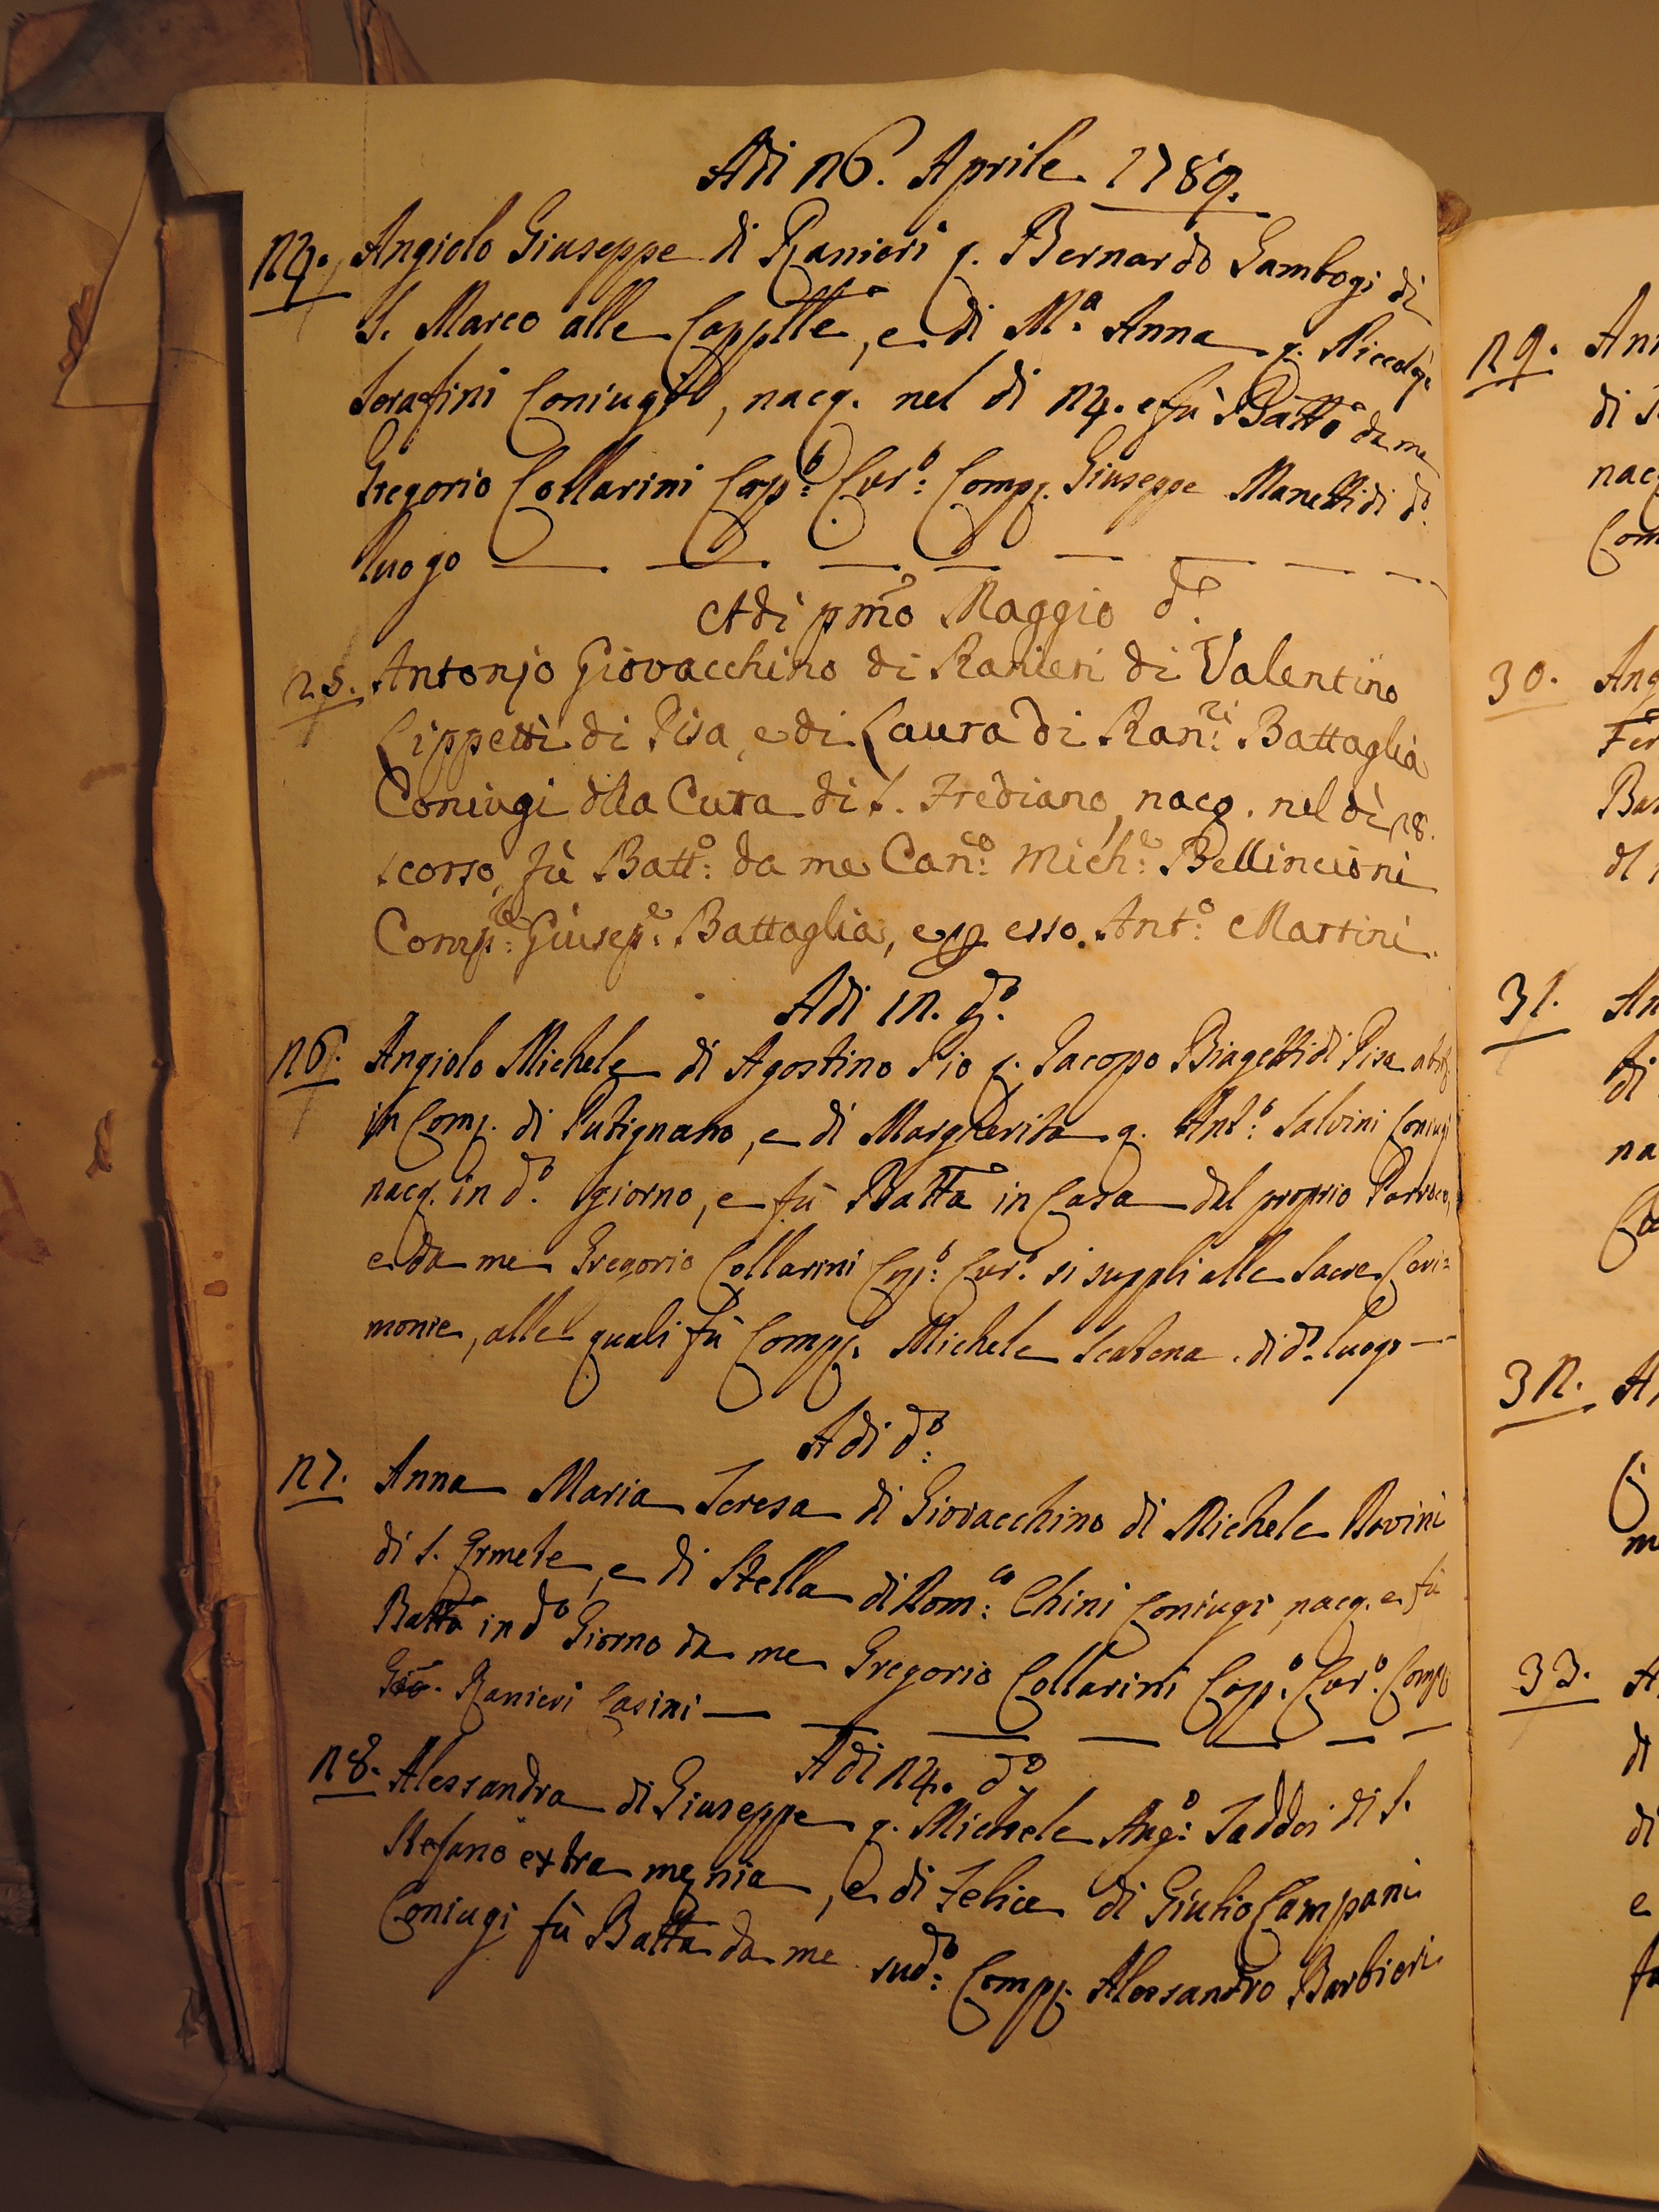 Adi 26. Aprile 1789.
24. Angiolo Giuseppe di Ranieri q. Bernardo Gambogi di
S. Marco alle Cappelle, e di M.a Anna q. Niccola
Serafini Coniugi, nacq. nel di 24. e fù Batt.o da me
Gregorio Collarini Capp.o Cur.o Comp. Giuseppe Manetti di d.o
luogo
Adi pmo Maggio d.o
25. Antonjo Giovacchino di Ranieri di Valentino
Lippetti di Pisa, e di Laura di Ran.ri Battaglia
Coniugi dlla Cura di S. Frediano, nacq. nel dì 28.
scorso, fù Batt.o da me Can.co Mich.e Bellincioni
Comp.e Giusep.e Battaglia, e p esso Ant.o Martini.
Adi 12. d.o
26. Angiolo Michele di Agostino Pio q. Jacopo Biagetti di Pisa
in Comp. di Putignano, e di Margherita q. Ant.o Salvini Coniugi
nacq. in d.o giorno, e fù Batta in Casa dal proprio Parroco,
e da me Gregorio Collarini Capp.o Cur.o si supplì alle Sacre Ceri=
monie, alle quali fù Comp. Michele Scatena di d.o luogo
Adi d.o
27. Anna Maria Teresa di Giovacchino di Michele Rovini
di S. Ermete, e di Stella di Dom.co Chini Coniugi, nacq. e fù
Batta in d.o Giorno da me Gregorio Collarini Capp.o Cur.o Comp.
Gio. Ranieri Casini
Adi 24. d.o
28. Alessandra di Giuseppe q. Michele Ang.o Taddei di S.
Stefano extra menia, e di Felice di Giulio Campani
Coniugi fù Batta da me sud.o Comp. Alessandro Barbieri
29. An
di S
nac
Com
30. Ang
Fer
Bat
di
31. An
di
na
Co
32. A
m
33. A
di
di
e
fu